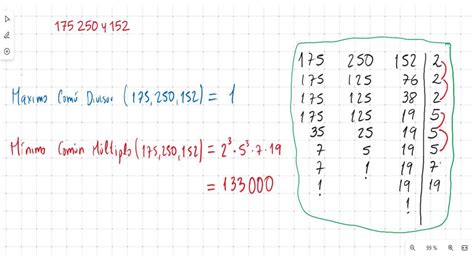 175 250 y 152
Maximo Comú Divisor (175,250,152) = 1
Mínimo Común Múltiplo (175,250,152) = 2³·5³·7·19
= 133000
175 250 152 2
175 125 76 2
175 125 38 2
175 125 19 5
35 25 19 5
7 5 19 5
7 1 19 7
1 19 19
1
99 %